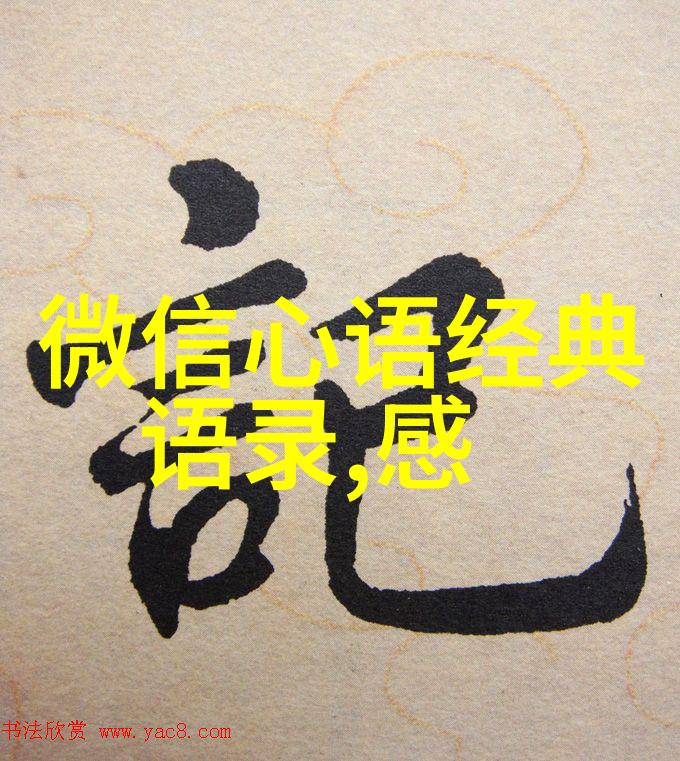 記
微信心语经典
语录,感
书法欣赏 www.yac8.com